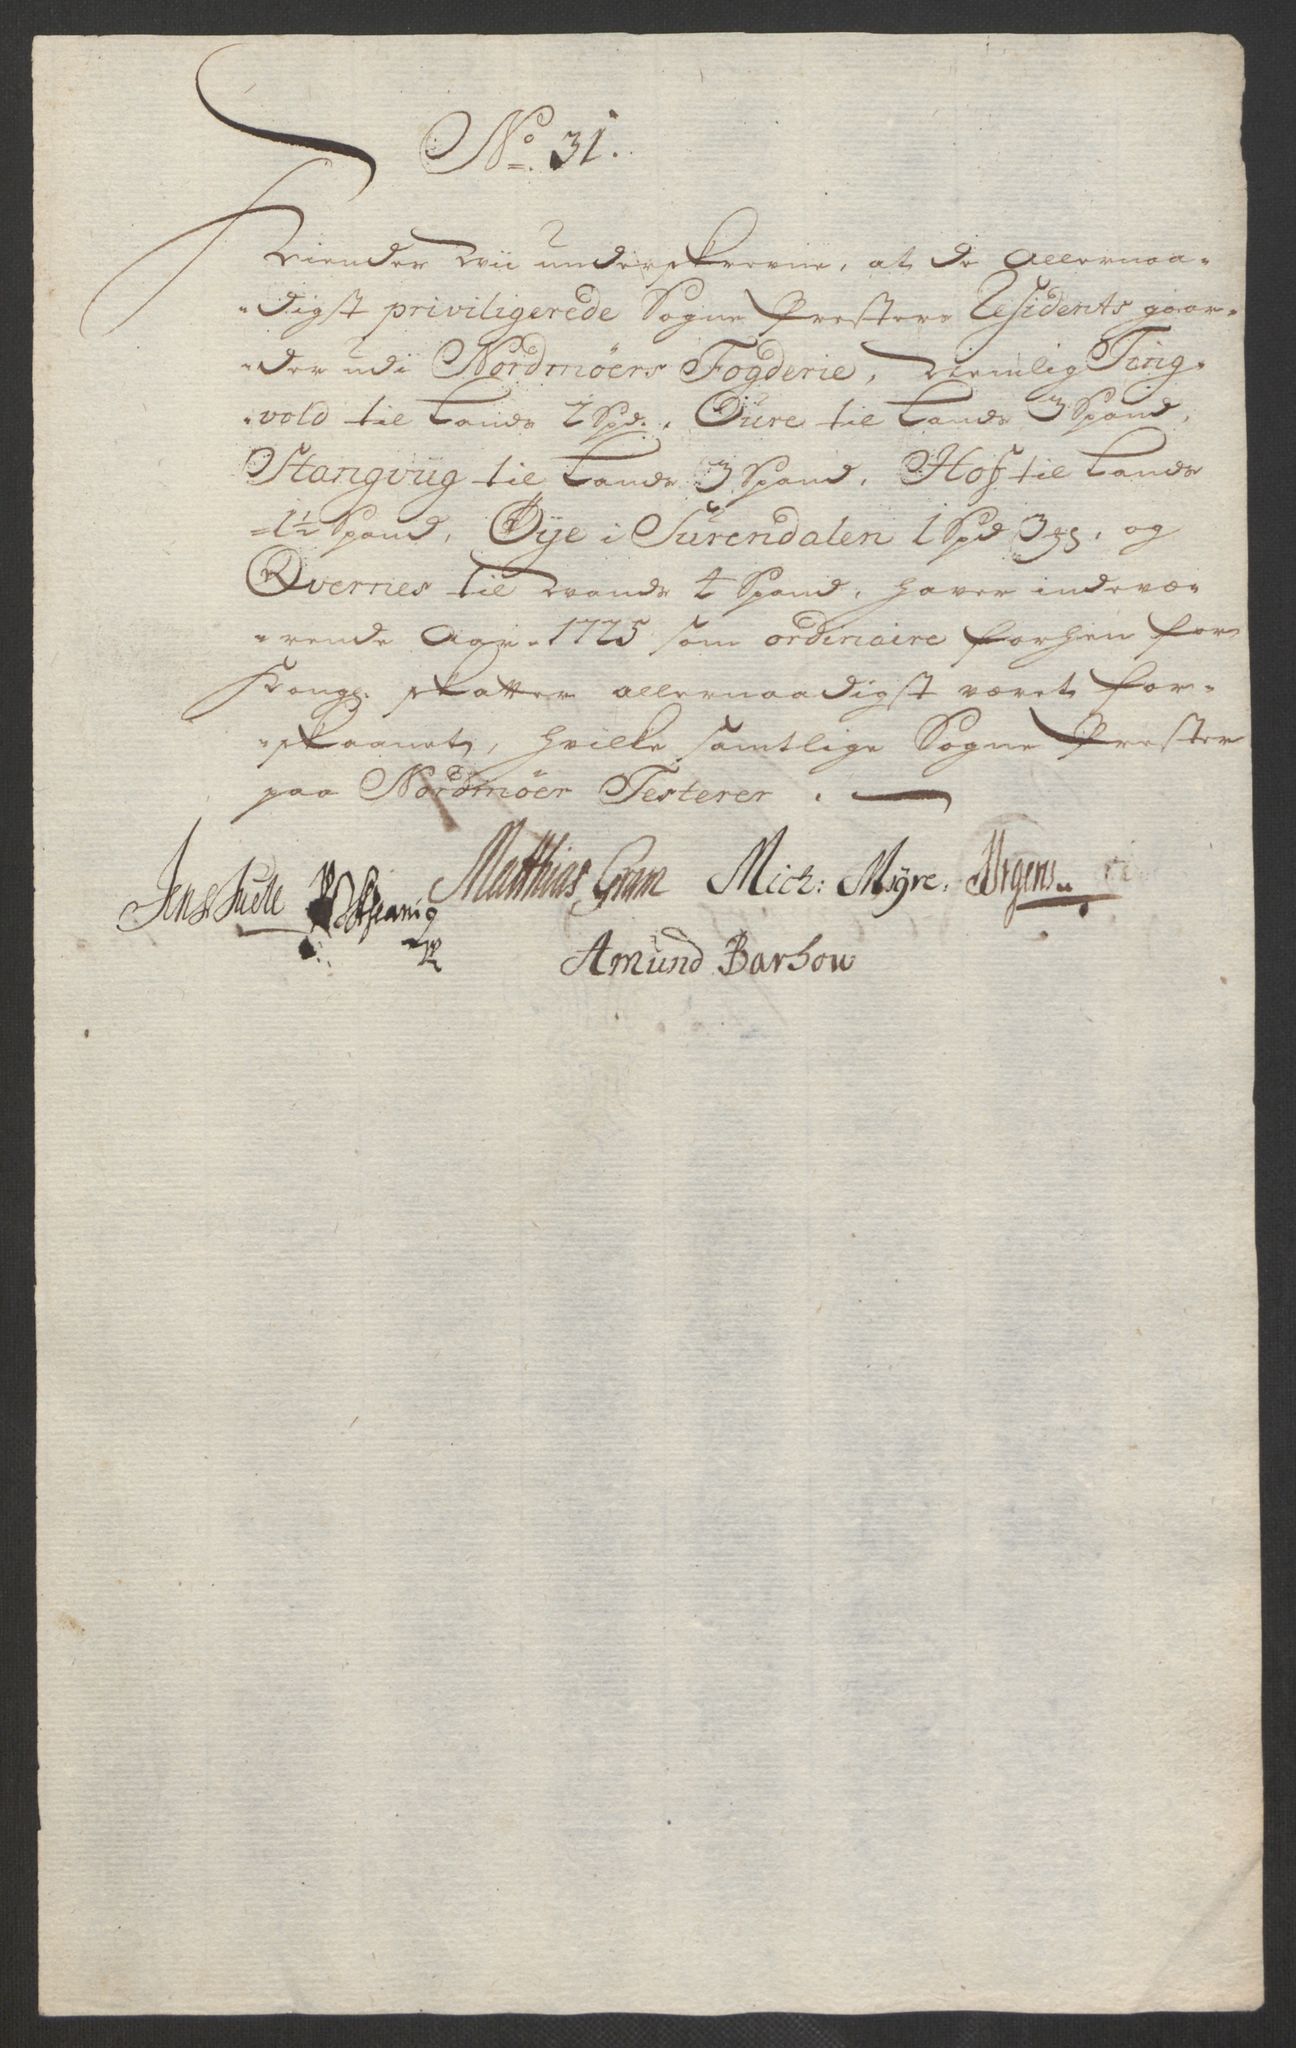 No. 31.
Kiender Wii underskrevne, at de Allernaa-
digst priviligerede Sogne Presters Residents gaar-
der udi Nordmøers Fogderie, Nemlig Ting-
vold til Lands 2 Spd., Øure til Lands 3 Spand,
Stangvug til Lands 3 Spand, Hof til Lands
1½ Spand, Øye i Surendalen 1 Spd 3, og
Qvernes til Lands 4 Spand, haver indevæ-
rende Aar 1725 som ordinaire forhen for
Kongl. skatter allernaadigst været for-
skaanet, hvilke samtlige Sogne Prester
paa Nordmøer Testerer.
Jens Juell Matthias Gram Mich: Myre.
Amund Barhow